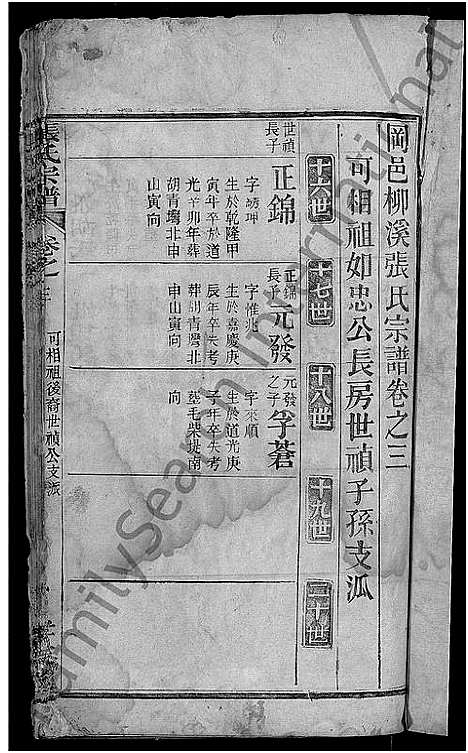 岡邑柳溪張氏宗譜卷之三
可相祖如忠公長房世禎子孫支派
十六世
十七世
十八世
十九世
二十世
世禎長子
正錦
字 坤
生於乾隆甲
寅年卒於道
光辛卯年葬
胡青塆北申
山寅向
正錦長子
元發
字惟兆
生於嘉慶庚
辰年卒失考
葬胡青塆北
申山寅向
元發之子
孚蒼
字來順
生於道光庚
子年卒失考
葬毛柴坳南
向
張氏宗譜
卷之三
可相祖後裔世禎公支派
FamilySearch International